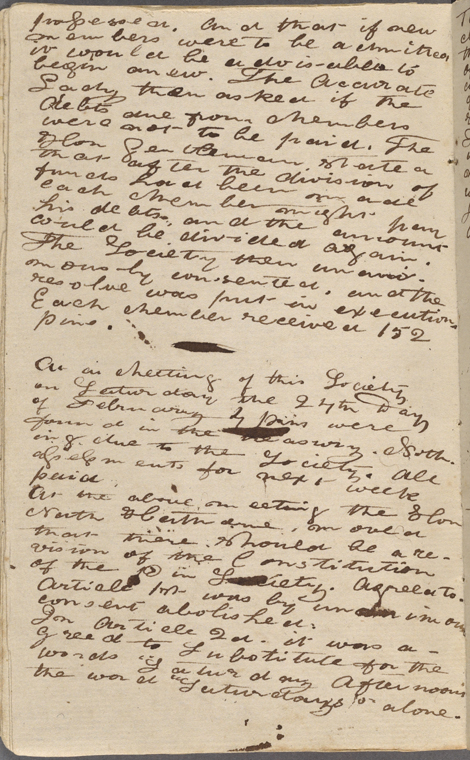 professed. And that if new
members were to be admitted,
it would be adviseable to
begin anew. The Accurate
Lady then asked if the
debts due from Members
were not to be paid. The
Hon Gentleman state a
that after the division of
funds had been made
each Member might pay
his debts, and the amount
could be divided again.
The Society then unani-
mously consented, and the
resolve was put in execution.
Each Member received 152
pins.
At a Meeting of this Society
on Saturday the 24th Day
of February 2 pins were
found in the Treasury. Noth-
ing due to the Society. All
assessments for next week
paid.
At the above meeting the Hon
moved
that there should be a re-
vision of the Constitution
of the in Society. Agreed to.
Article 1st was by unanimous
consent abolished.
In Article 2d. it was a-
greed to Substitute for the
words "Saturday Afternoons"
the word "Saturdays" alone.